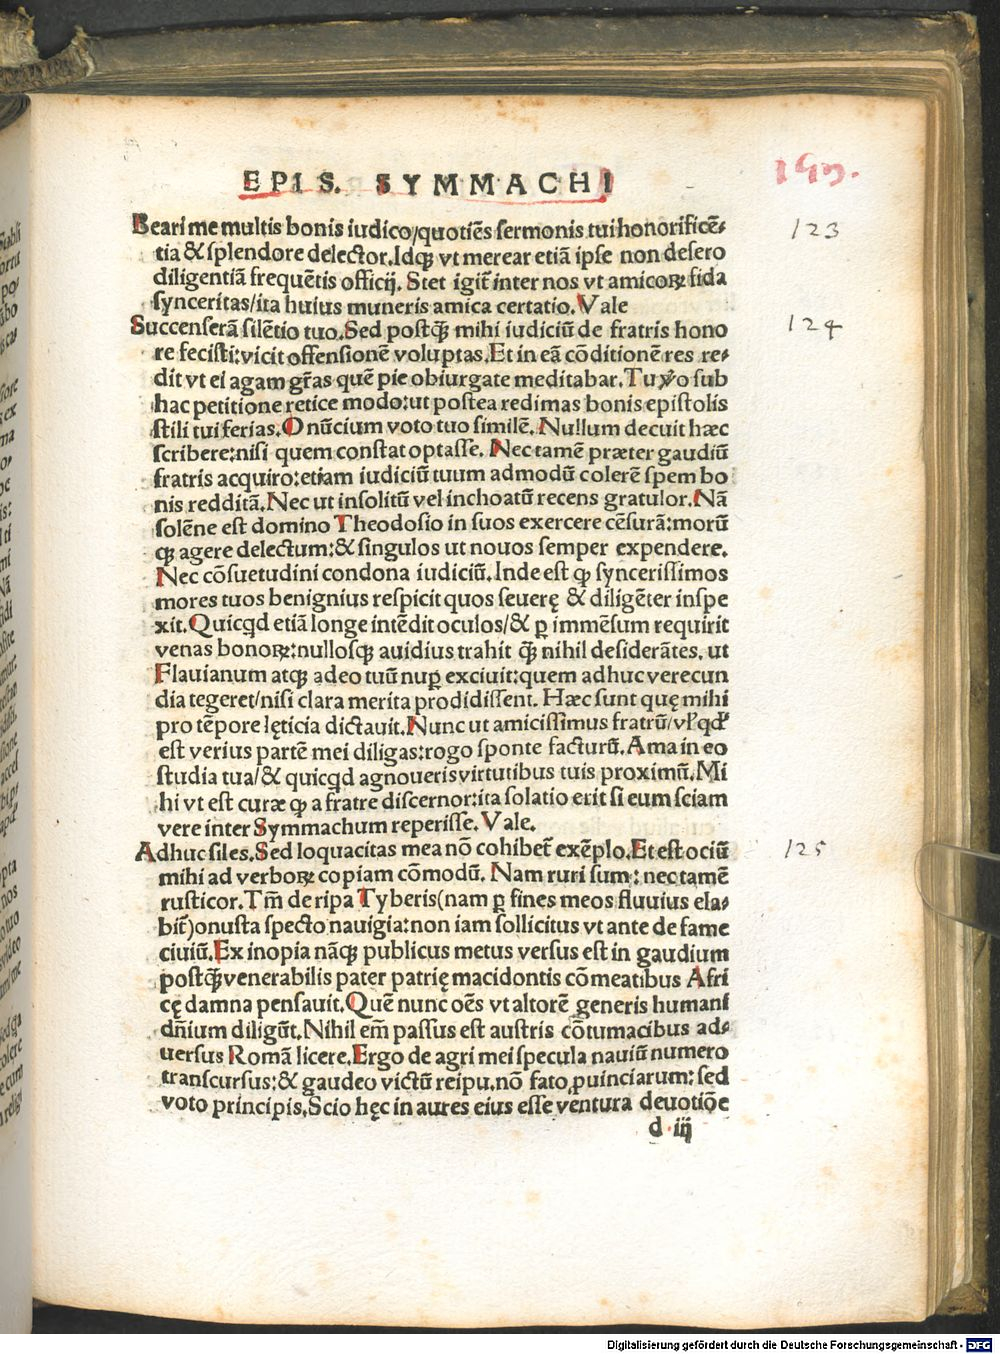 EPIS. SYMMACHI
193.
Beari me multis bonis iudico/quotiēs sermonis tui honorificē⸗
tia & splendore delector.Idqꝫ vt merear etiā ipse non desero
diligentiā frequētis officij. Stet igit̃ inter nos vt amicoꝝ fida
synceritas/ita huius muneris amica certatio.Vale
123
Succenserā silētio tuo.Sed postq̄ꝫ mihi iudiciū de fratris hono
re fecisti:vicit offensionē voluptas.Et in eā cōditionē res re⸗
dit vt ei agam gr̄as quē pie obiurgate meditabar.Tu ꝟo sub
hac petitione retice modo:ut postea redimas bonis epistolis
stili tui ferias.O nūcium voto tuo similē.Nullum decuit hæc
scribere:nisi quem constat optasse. Nec tamē præter gaudiū
fratris acquiro:etiam iudiciū tuum admodū colerē spem bo
nis redditā.Nec ut insolitū vel inchoatū recens gratulor.Nā
solēne est domino Theodosio in suos exercere cēsurā:morū
qꝫ agere delectum:& singulos ut nouos semper expendere.
Nec cōsuetudini condona iudiciū.Inde est ꝙ syncerissimos
mores tuos benignius respicit quos seuerę & diligēter inspe
xit.Quicqd etiā longe intēdit oculos/& ꝑ immēsum requirit
venas bonoꝝ:nullosqꝫ auidius trahit q̄ꝫ nihil desiderātes. ut
Flauianum atqꝫ adeo tuū nuꝑ exciuit:quem adhuc verecun
dia tegeret/nisi clara merita prodidissent. Hæc sunt quę mihi
pro tēpore lęticia dictauit.Nunc ut amicissimus fratrū/vꝉ qđ
est verius partē mei diligas:rogo sponte facturū.Ama in eo
studia tua/& quicqd agnoueris virtutibus tuis proximū.Mi
hi vt est curæ ꝙ a fratre discernor:ita solatio erit si eum sciam
vere inter Symmachum reperisse.Vale.
124
Adhuc siles.Sed loquacitas mea nō cohibet̃ exēplo.Et est ociū
mihi ad verboꝝ copiam cōmodū. Nam ruri sum: nec tamē
rusticor.Tm̄ de ripa Tyberis(nam ꝑ fines meos fluuius ela⸗
bit̃)onusta specto nauigia:non iam sollicitus vt ante de fame
ciuiū.Ex inopia nāqꝫ publicus metus versus est in gaudium
postq̄ꝫ venerabilis pater patrię macidontis cōmeatibus Afri
cę damna pensauit.Quē nunc oēs vt altorē generis humani
dñium diligūt.Nihil em̄ passus est austris cōtumacibus ad⸗
uersus Romā licere.Ergo de agri mei specula nauiū numero
transcursus:& gaudeo victū reipu.nō fato ꝓuinciarum: sed
voto principis.Scio hęc in aures eius esse ventura deuotiōe
125
d iij
Digitalisierung gefördert durch die Deutsche Forschungsgemeinschaft - DFG